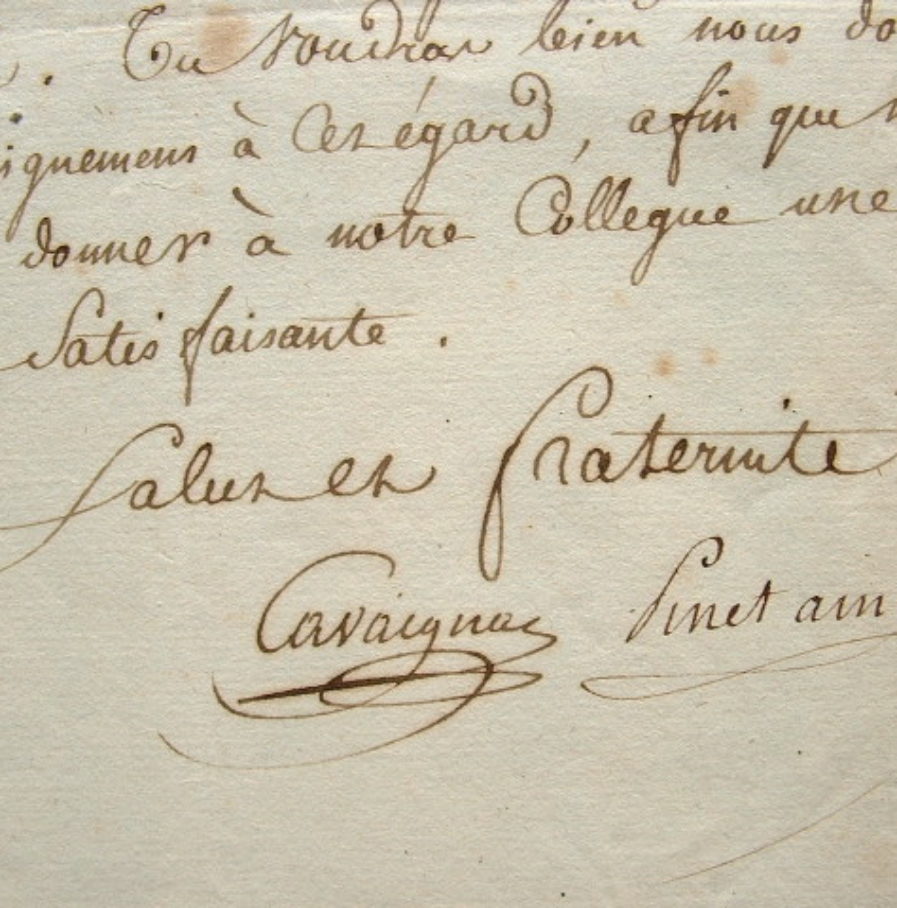 . Tu voudras bien nous do
ignemens à cet égard, afin que
donner à notre Collegue une
Satisfaisante.
Salut et fraternité
Cavaignac Pinet ain